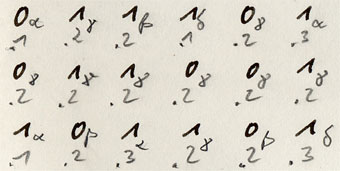 0α 1γ 1β 1δ 0γ 1α
.1 .2 .2 .1 .2 .3
0γ 1γ 1γ 0γ 0γ 1γ
.2 .2 .2 .2 .2 .2
1α 0β 1α 1γ 0β 1δ
.1 .2 .3 .2 .2 .3